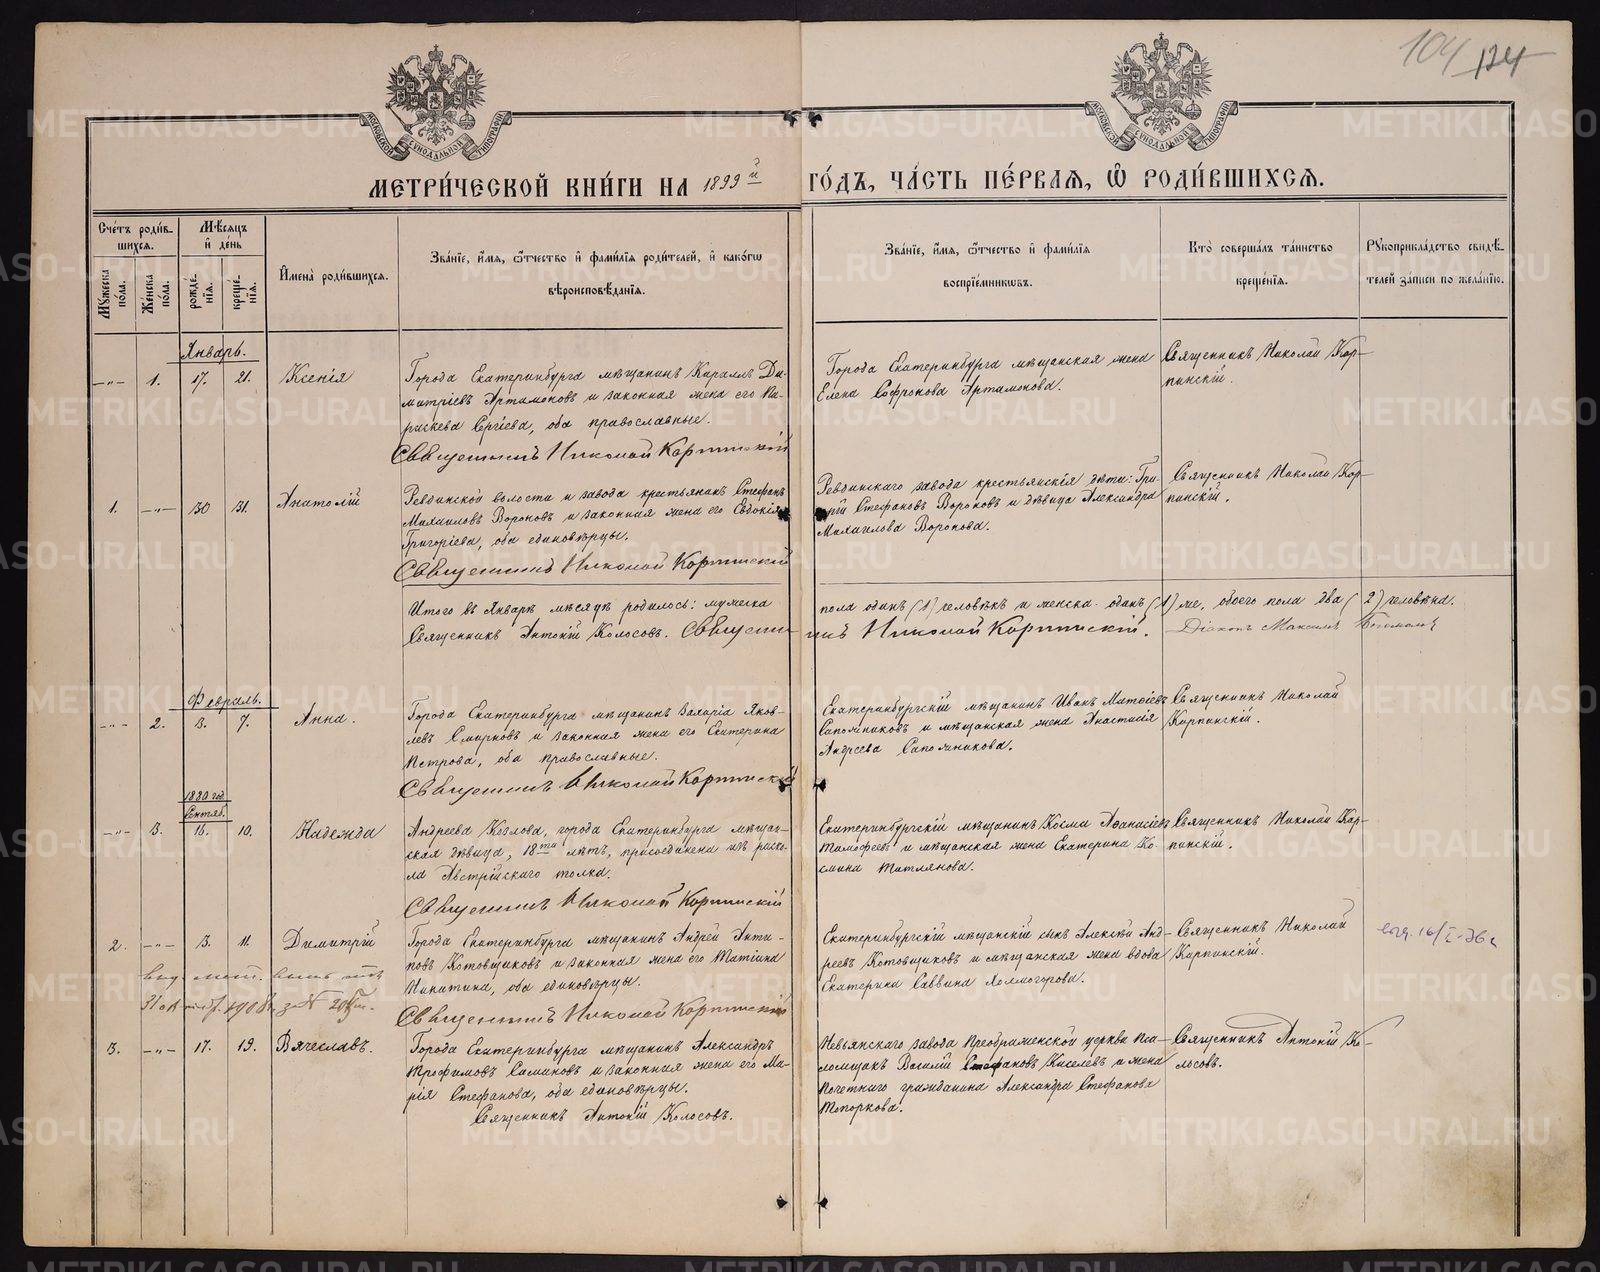 104 124
МОСКОВСКОЙ СУНОДАЛЬНОЙ ТИПОГРАФІИ
МОСКОВСКОЙ СУНОДАЛЬНОЙ ТИПОГРАФІИ
МЕТРИ́ЧЕСКОЙ КНИ́ГИ НА 1899й ГО́ДЪ, ЧА́СТЬ ПЕ́РВАѦ, Ѡ҆ РОДИ́ВШИХСѦ.
Сче́тъ роди́в-
шихсѧ.
Мꙋжеска по́ла.
Же́нска по́ла.
Мѣ́сѧцъ
и҆ де́нь
рожде́-
нїѧ.
креще́-
нїѧ.
И҆мена̀ роди́вшихсѧ.
Зва́нїе, и҆́мѧ, ѻ҆́тчество и҆ фами́лїѧ роди́телей, и҆ како́гѡ
вѣроисповѣ́данїѧ.
Зва́нїе, и҆́мѧ, ѻ҆́тчество и҆ фами́лїѧ
воспрїе́мникѡвъ.
Кто̀ соверша́лъ та́инство
креще́нїѧ.
Рꙋкоприкла́дство свидѣ́-
телей за́писи по жела́нїю.
Январь.
—„— 1. 17. 21. Ксенія
Города Екатеринбурга мѣщанинъ Кириллъ Ди-
митріевъ Артамоновъ и законная жена его Па-
раскева Сергіева, оба православные.
Священникъ Николай Карпинскій
Города Екатеринбурга мѣщанская жена
Елена Софронова Артамонова.
Священникъ Николай Кар-
пинскій.
1. —„— 30 31. Анатолій
Ревдинской волости и завода крестьянинъ Стефанъ
Михаиловъ Вороновъ и законная жена его Евдокія
Григоріева, оба единовѣрцы.
Священникъ Николай Карпинскій
Ревдинскаго завода крестьянскія дѣти: Гри-
горій Стефановъ Вороновъ и дѣвица Александра
Михаилова Воронова.
Священникъ Николай Кар-
пинскій.
Итого въ Январѣ мѣсяцѣ родилось: мужеска пола одинъ (1) человѣкъ и женска одинъ (1) же, обоего пола два (2) человѣка.
Священникъ Антоній Колосовъ. Священникъ Николай Карпинскій. Діаконъ Максимъ
Февраль.
—„— 2. 3. 7. Анна.
Города Екатеринбурга мѣщанинъ Захарія Яков-
левъ Смирновъ и законная жена его Екатерина
Петрова, оба православные.
Священникъ Николай Карпинскій
Екатеринбургскій мѣщанинъ Иванъ Матѳіевъ
Сапожниковъ и мѣщанская жена Анастасія
Андреева Сапожникова.
Священникъ Николай
Карпинскій.
1880 год.
Сентяб.
—„— 3. 16. 10. Надежда
Андреева Козлова, города Екатеринбурга мѣщан-
ская дѣвица, 18ти лѣтъ, присоединена изъ раско-
ла Австрійскаго толка.
Священникъ Николай Карпинскій
Екатеринбургскій мѣщанинъ Косма Аѳанасіевъ
Тимофеевъ и мѣщанская жена Екатерина Ко-
смина
Священникъ Николай Кар-
пинскій.
2. —„— 3. 11. Димитрій
Города Екатеринбурга мѣщанинъ Андрей Анти-
повъ Котовщиковъ и законная жена его Татіана
Никитина, оба единовѣрцы.
Священникъ Николай Карпинскій
Екатеринбургскій мѣщанскій сынъ Алексѣй Анд-
реевъ Котовщиковъ и мѣщанская жена вдова
Екатерина Саввина Холмогорова.
Священникъ Николай
Карпинскій.
3. —„— 17. 19. Вячеславъ.
Города Екатеринбурга мѣщанинъ Александръ
Трофимовъ Симановъ и законная жена его Ма-
рія Стефанова, оба единовѣрцы.
Священникъ Антоній Колосовъ.
Невьянскаго завода Преображенской церкви пса-
ломщикъ Василій Стефановъ Киселевъ и жена
почетнаго гражданина Александра Стефанова
Топоркова.
Священникъ Антоній Ко-
лосовъ.
METRIKI.GASO-URAL.RU